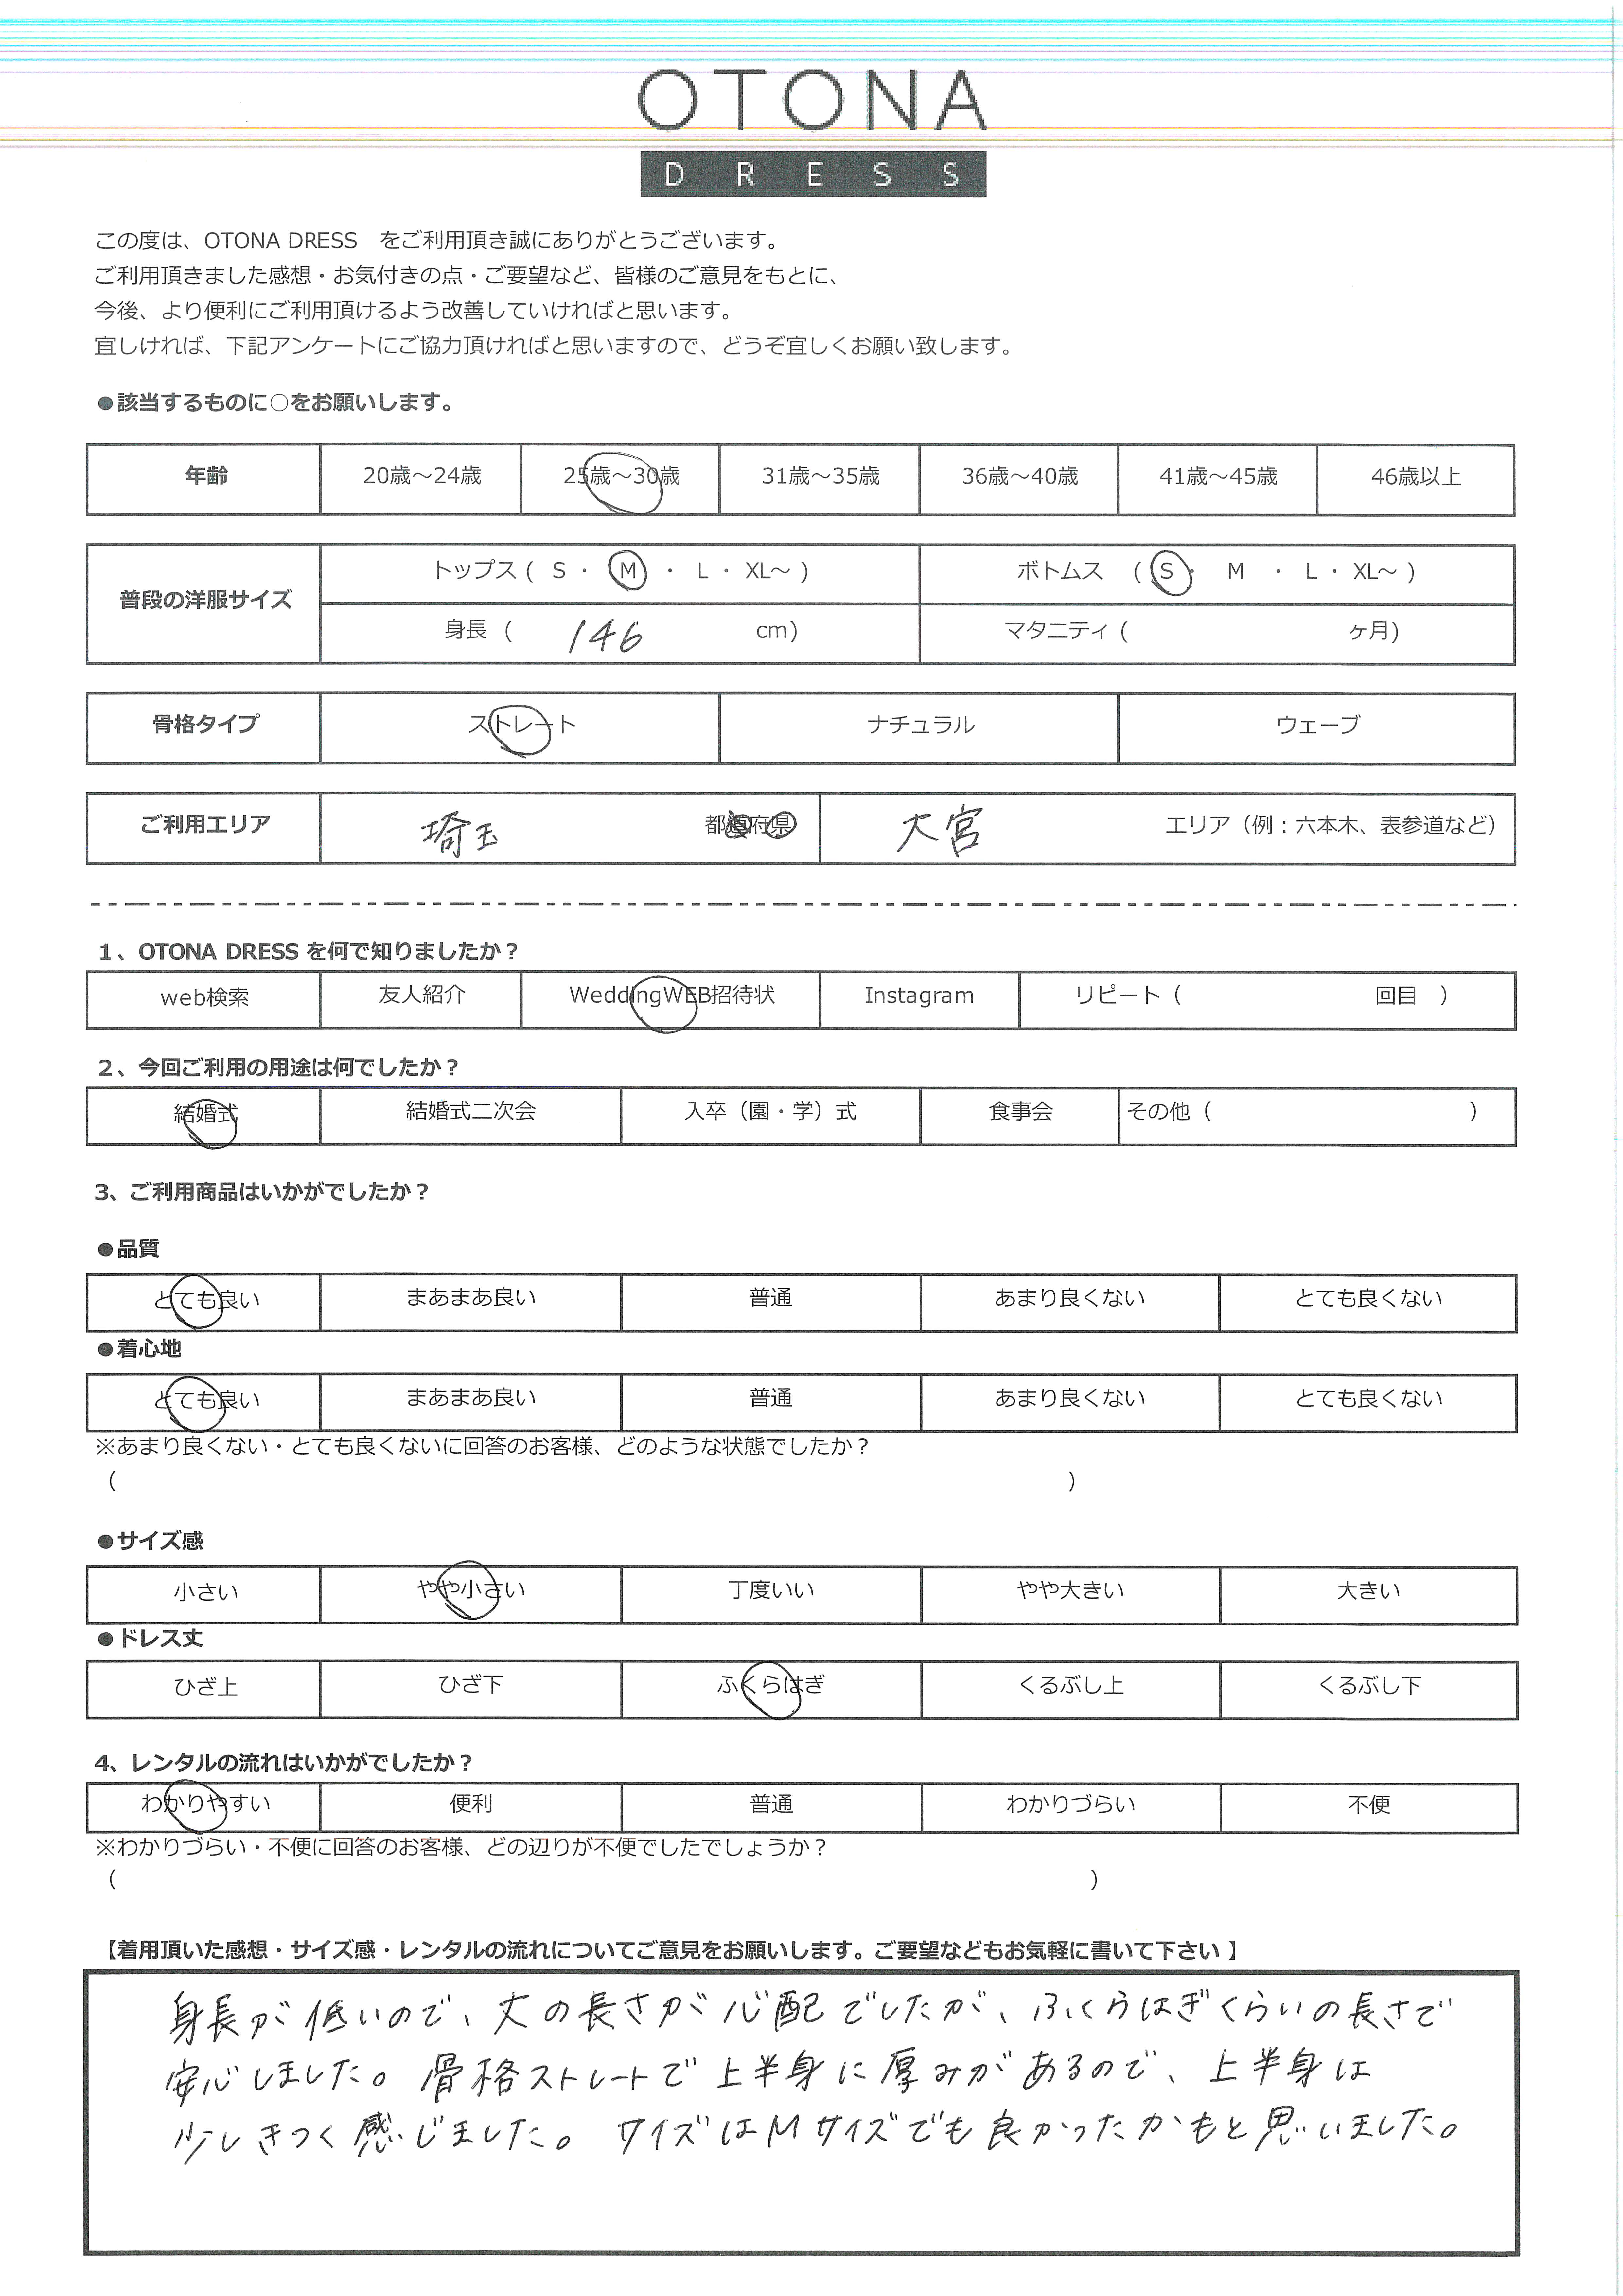 OTONA
DRESS
この度は、OTONA DRESS　をご利用頂き誠にありがとうございます。
ご利用頂きました感想・お気付きの点・ご要望など、皆様のご意見をもとに、
今後、より便利にご利用頂けるよう改善していければと思います。
宜しければ、下記アンケートにご協力頂ければと思いますので、どうぞ宜しくお願い致します。
●該当するものに○をお願いします。
年齢 20歳～24歳 25歳～30歳 31歳～35歳 36歳～40歳 41歳～45歳 46歳以上
普段の洋服サイズ トップス ( S ・ M ・ L ・ XL～ ) ボトムス ( S ・ M ・ L ・ XL～ )
身長 ( 146 cm) マタニティ ( ヶ月)
骨格タイプ ストレート ナチュラル ウェーブ
ご利用エリア 埼玉 都道府県 大宮 エリア（例：六本木、表参道など）
1、OTONA DRESS を何で知りましたか？
web検索 友人紹介 WeddingWEB招待状 Instagram リピート（ 回目 ）
2、今回ご利用の用途は何でしたか？
結婚式 結婚式二次会 入卒（園・学）式 食事会 その他（ ）
3、ご利用商品はいかがでしたか？
●品質
とても良い まあまあ良い 普通 あまり良くない とても良くない
●着心地
とても良い まあまあ良い 普通 あまり良くない とても良くない
※あまり良くない・とても良くないに回答のお客様、どのような状態でしたか？
（ ）
●サイズ感
小さい やや小さい 丁度いい やや大きい 大きい
●ドレス丈
ひざ上 ひざ下 ふくらはぎ くるぶし上 くるぶし下
4、レンタルの流れはいかがでしたか？
わかりやすい 便利 普通 わかりづらい 不便
※わかりづらい・不便に回答のお客様、どの辺りが不便でしたでしょうか？
（ ）
【着用頂いた感想・サイズ感・レンタルの流れについてご意見をお願いします。ご要望などもお気軽に書いて下さい 】
身長が低いので、丈の長さが心配でしたが、ふくらはぎくらいの長さで
安心しました。骨格ストレートで上半身に厚みがあるので、上半身は
少しきつく感じました。サイズはMサイズでも良かったかもと思いました。